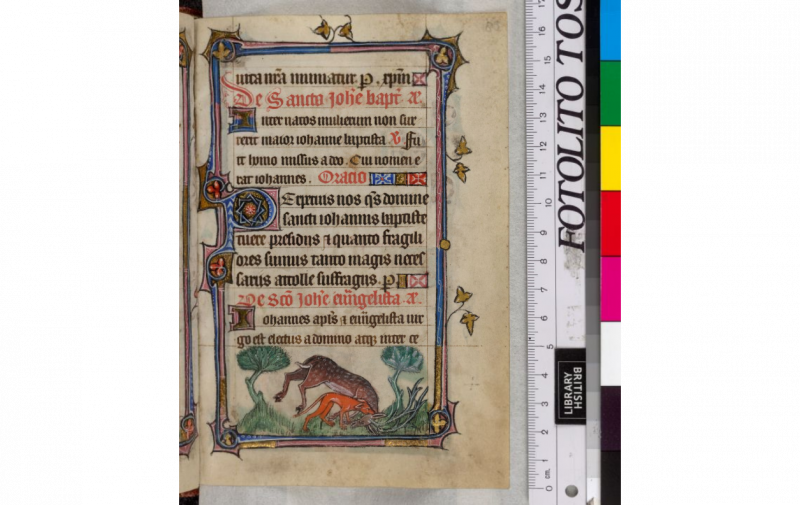 uita nr̄a muniatur p. xpm̄
De Sancto Joh̄e bapt᷑ a᷑.
Inter natos mulierum non sur
rexit maior iohanne baptista ℣ Fu
it homo missus a deo. Cui nomen e
rat iohannes. Oracio
Perpetuis nos qs̄ domine
sancti iohannis baptiste
tuere presidiis ⁊ quanto fragili
ores sumus tanto magis neces
sariis attolle suffragiis. p
De Sc̄o Joh̄e ewangelista. a᷑.
Iohannes apl̄s ⁊ ewangelista uir
go est electus a domino atq; inter ce
FOTOLITO TOS
LIBRARY
BRITISH
17
16
15
14
13
12
11
10
9
8
7
6
5
4
3
2
1
0
cm